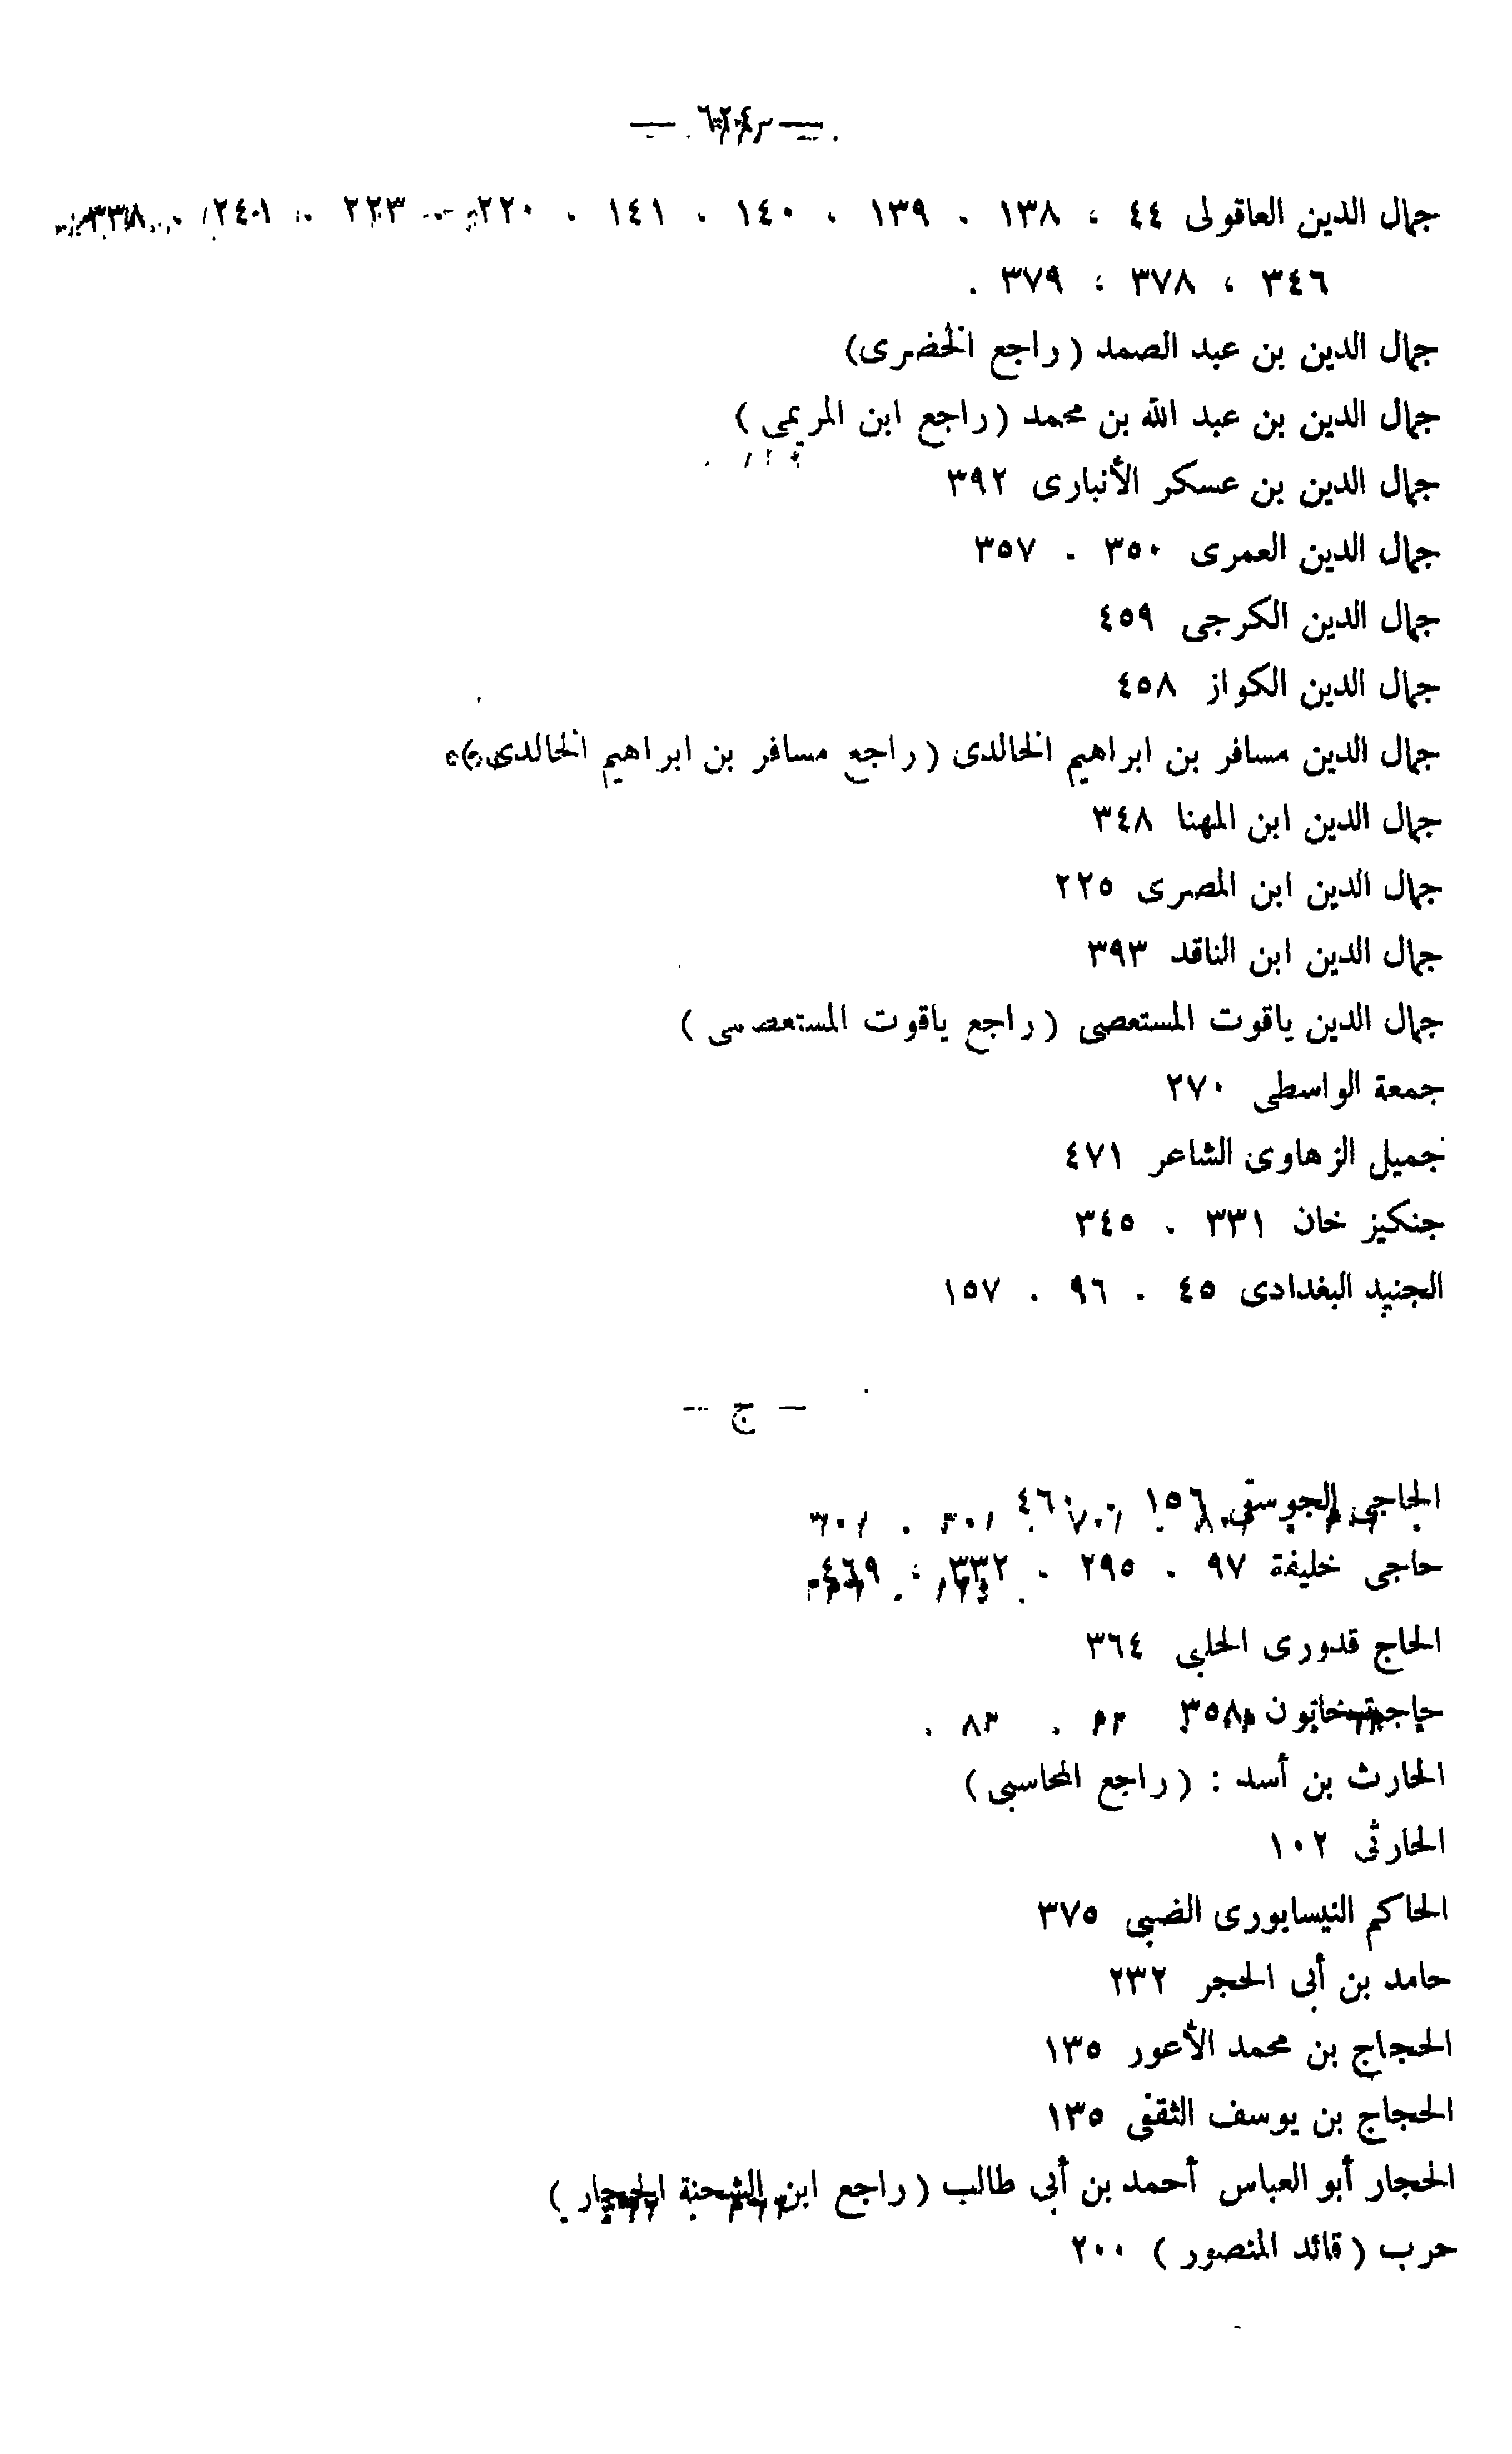 — ٦٢٤ —
جمال الدين العاقولى ٤٤ ، ١٣٨ ، ١٣٩ ، ١٤٠ ، ١٤١ ، ٢٢٠ ، ٢٢٣ ، ٢٤٠١ ، ٣٣٨ ،
٣٤٦ ، ٣٧٨ ، ٣٧٩ .
جمال الدين بن عبد الصمد ( راجع الخضرى)
جمال الدين بن عبد الله بن محمد (راجع ابن المريمى )
جمال الدين بن عسكر الأنبارى ٣٩٢
جمال الدين العمرى ٣٥٠ . ٣٥٧
جمال الدين الكرجى ٤٥٩
جمال الدين الكواز ٤٥٨
جمال الدين مسافر بن ابراهيم الخالدى ( راجع مسافر بن ابراهيم الخالدى )
جمال الدين ابن المهنا ٣٤٨
جمال الدين ابن المصرى ٢٢٥
جمال الدين ابن الناقد ٣٩٣
جمال الدين ياقوت المستعصمى ( راجع ياقوت المستعصمى )
جمعة الواسطى ٢٧٠
جميل الزهاوى الشاعر ٤٧١
جنكيز خان ٣٣١ . ٣٤٥
الجنيد البغدادى ٤٥ . ٩٦ . ١٥٧
— ح —
الحاجى الجوسقى ١٥٦ . ٤٦٠
حاجى خليفة ٩٧ . ٢٩٥ . ٣٣٢ ، ٤٦٩
الحاج قدورى الحلبى ٣٦٤
خاتون ٣٥٨
الحارث بن أسد : ( راجع المحاسبى )
الحارثى ١٠٢
الحاكم النيسابورى الضبى ٣٧٥
حامد بن أبى الحجر ٢٣٢
الحجاج بن محمد الأعور ١٣٥
الحجاج بن يوسف الثقفى ١٣٥
الحجار أبو العباس أحمد بن أبى طالب ( راجع ابن الشحنة الحجار )
حرب ( قائد المنصور ) ٢٠٠